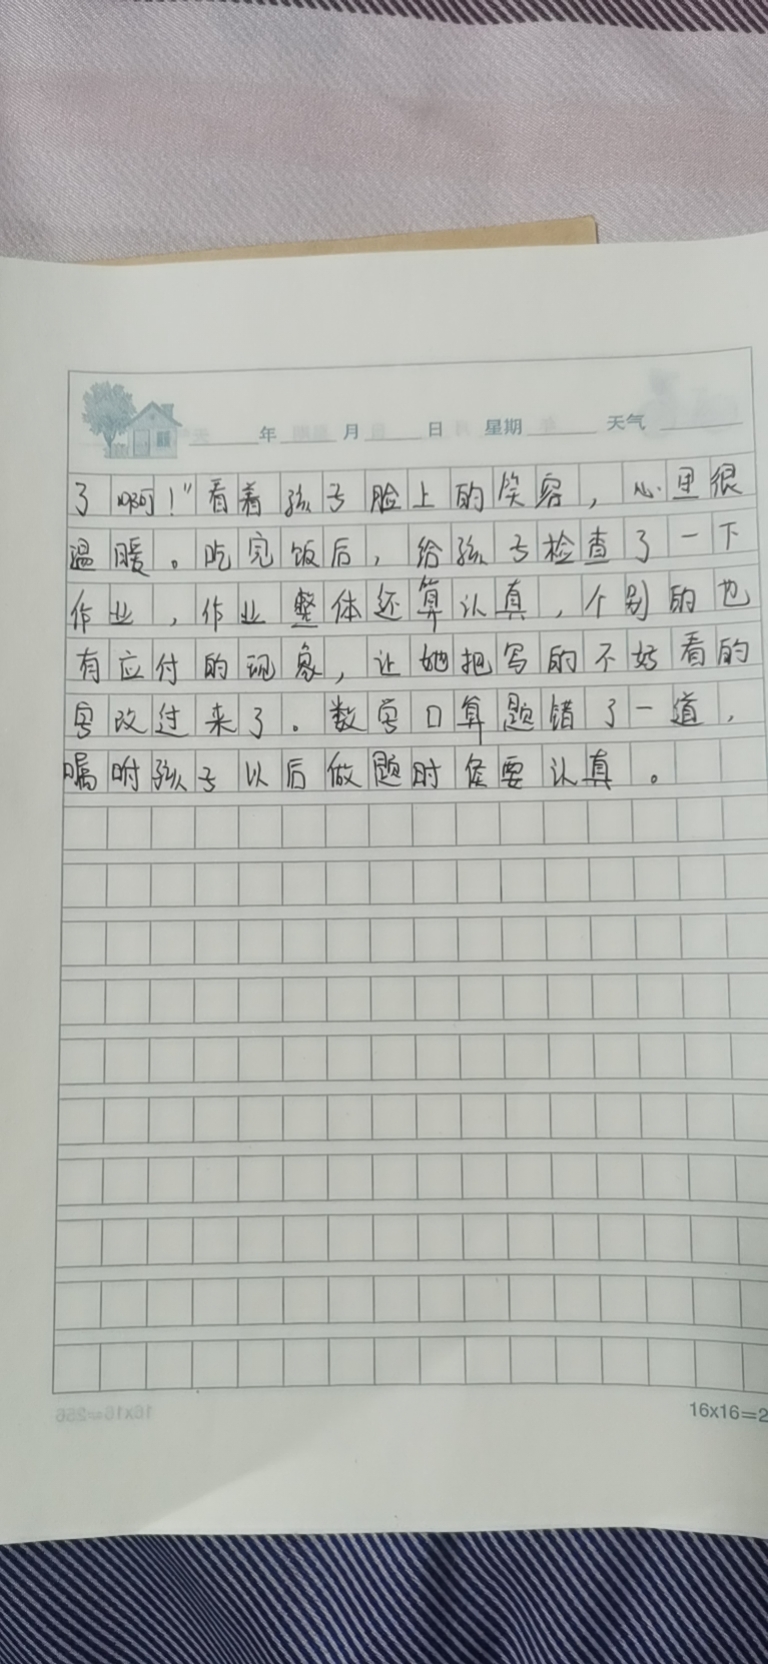 年 月 日 星期 天气
了啊！”看着孩子脸上的笑容，心里很
温暖。吃完饭后，给孩子检查了一下
作业，作业整体还算认真，个别的也
有应付的现象，让她把写的不好看的
字改过来了。数学口算题错了一道，
嘱咐孩子以后做题时侯要认真。
16x16=2